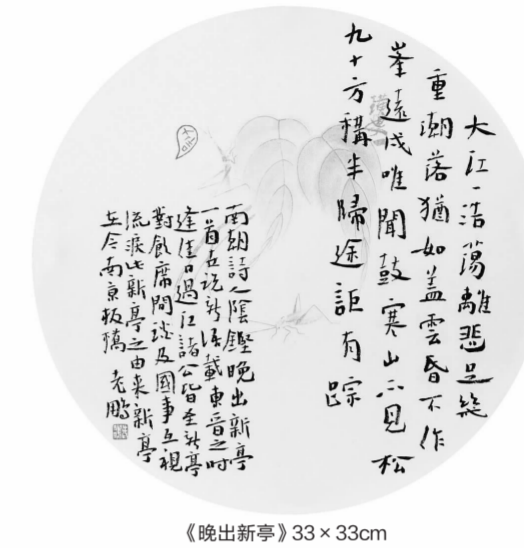 大江一浩蕩離悲足幾
重潮落猶如盖雲昏不作
峯遠戍唯聞鼓寒山見松
九十方稱半歸途詎有踪
南朝詩人陰鏗晚出新亭
一首世説新語載東晋之時
逢佳日過江諸公皆至新亭
對飲席間談及國事互視
流淚此新亭之由来新亭
在今南京板橋 老鵬
《晚出新亭》33×33cm